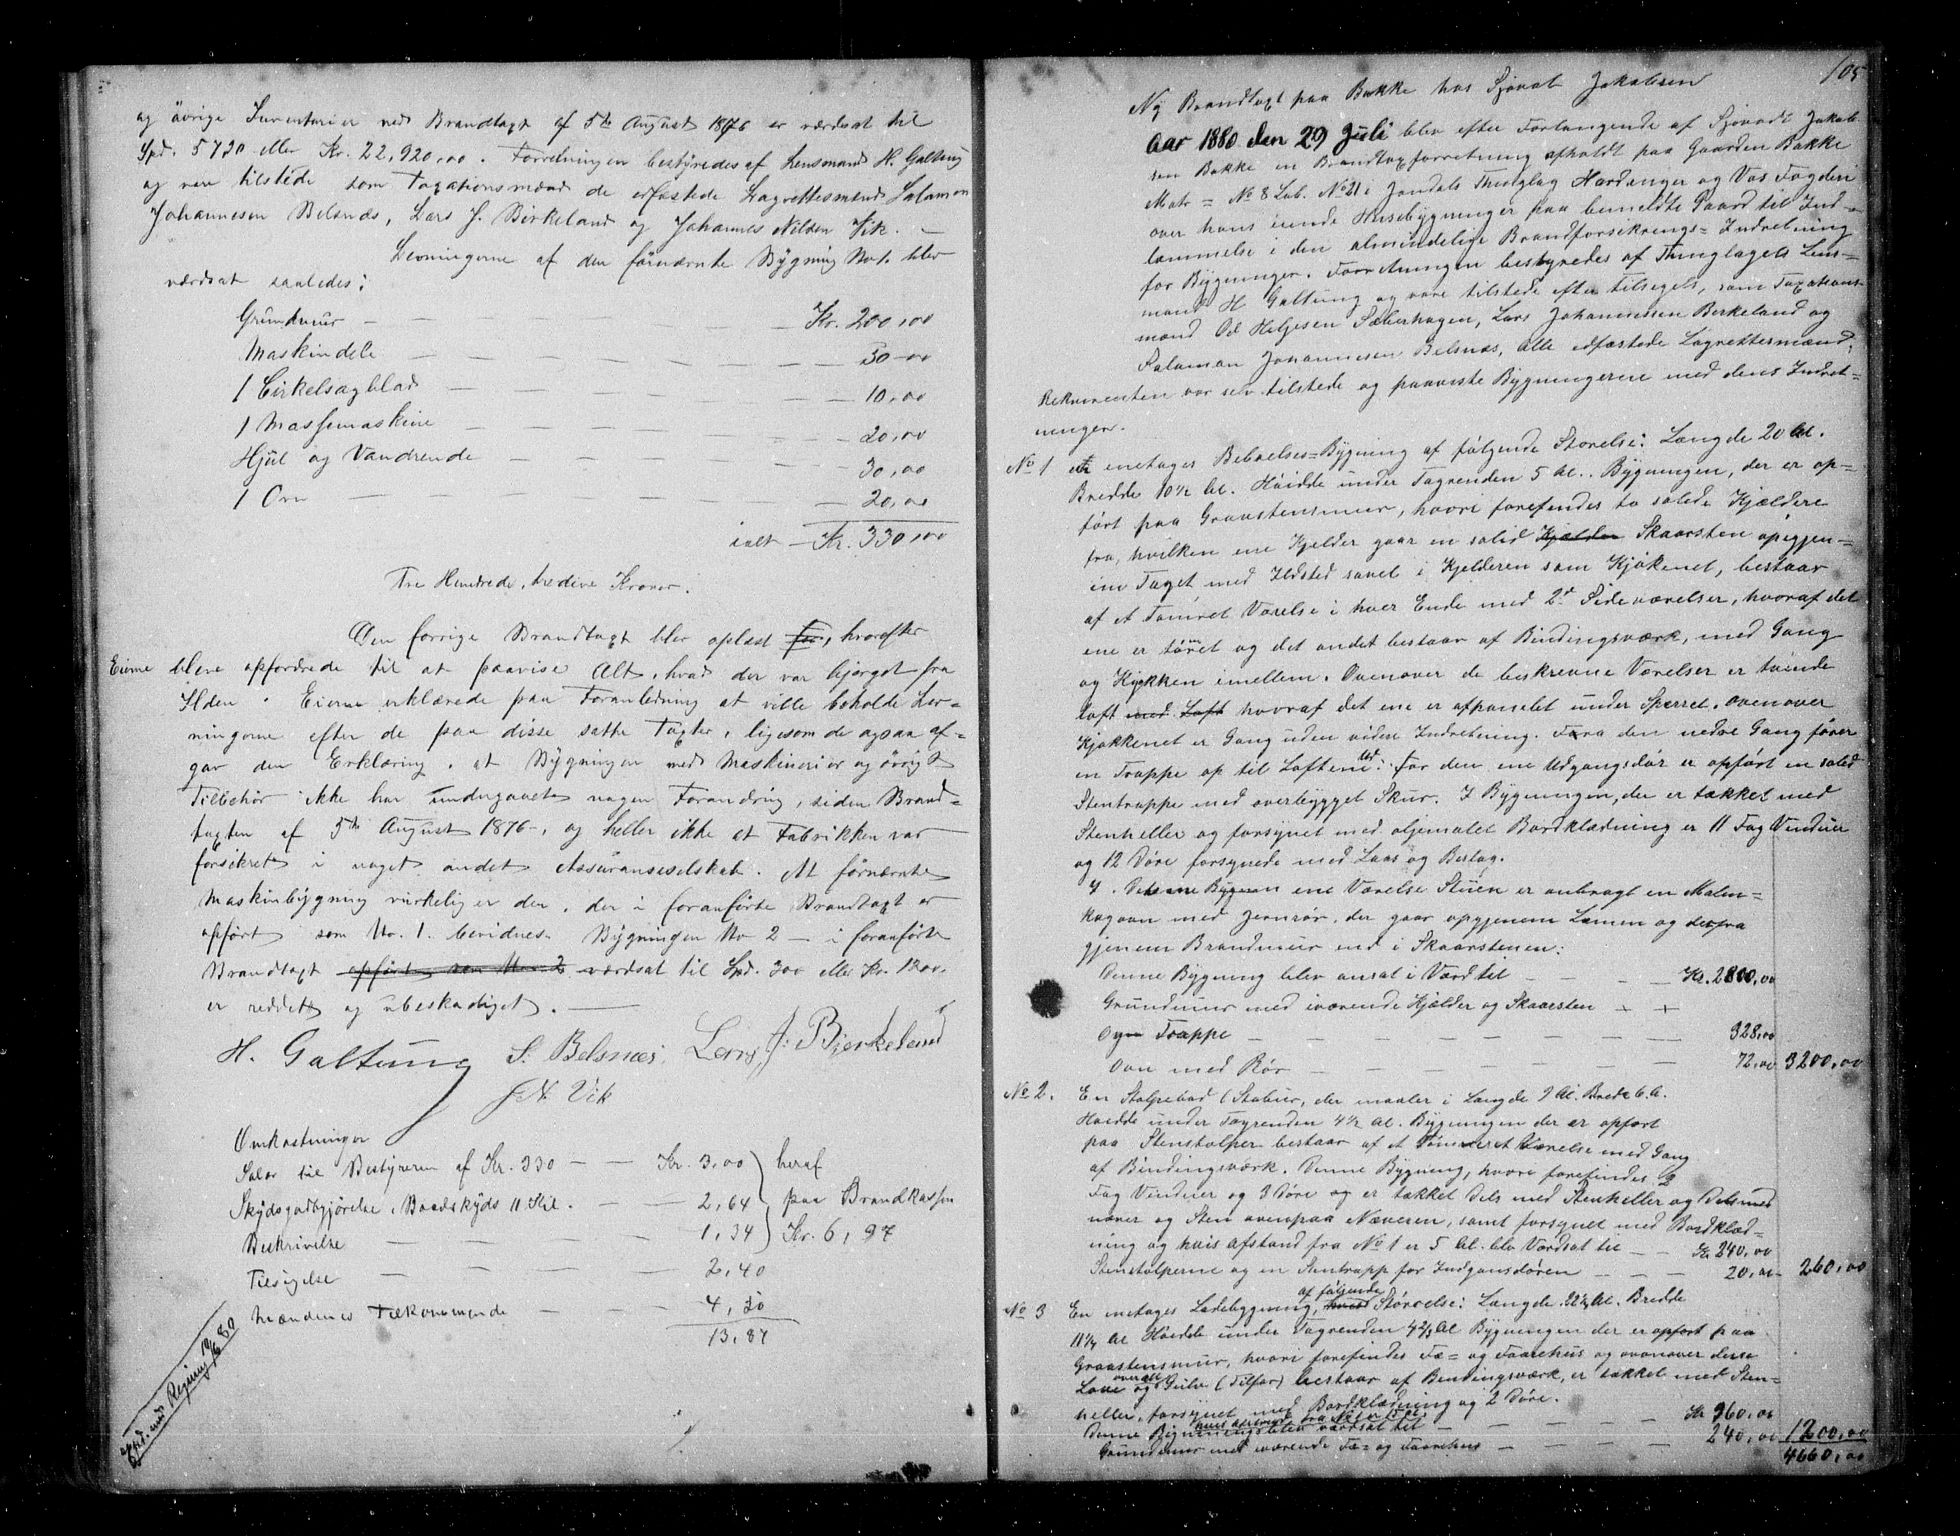 og övrige Inventarier ved Brandtaxt af 5te August 1876 er værdsat til
Spd. 5730 eller Kr. 22,920,00. Forretningen bestyredes af Lensmand H. Galtung
og vare tilstede som Taxationsmænd de edfæstede Lagrettesmænd Salamon
Johannesen Belsnæs, Lars J. Birkeland og Johannes Nilsen Vik. —
Levningerne af den förnævnte Bygning No 1 blev
værdsat saaledes:
Grundmur — Kr. 200,00
Maskindele — 50-00
1 Cirkelsagblad — 10,00
1 Massemaskine — 20,00
Hjul og Vandrende — 30,00
1 Ovn — 20,00
ialt — Kr. 330,00
Tre Hundrede, tredive Kroner.
Den forrige Brandtaxt blev oplæst, hvorefter
Eierne bleve opfordrede til at paavise Alt, hvad der var bjerget fra
Ilden. Eierne erklærede paa Foranledning at ville beholde Lev-
ningerne efter de paa disse satte Taxter, ligesom de ogsaa af-
gav den Erklæring, at Bygningen med Maskineri er og övrigt
Tilbehör ikke har undergaaet nogen Forandring, siden Brand-
taxten af 5te August 1876, og heller ikke at Fabrikken var
forsikret i noget andet Assuranseselskab. At förnævnte
Maskinbygning virkelig er den, der i foranförte Brandtaxt er
opfört som No. 1. bevidnes. Bygningen No 2 — i foranförte
Brandtaxt opfört som No 2 værdsat til Spd. 300 eller Kr. 1200.
er reddet og ubeskadiget. —
H. Galtung S. Belsnæs, Lars J. Birkeland
J N Vik
Omkostninger
Salær til Bestyreren af Kr. 330 — Kr. 3,00 heraf
Skydsgodtgjörelse, Baadskyds 11 Kil. — 2,64 paa Brandkassen
Beskrivelse — 1,34 Kr. 6,97
Tilsigelse — 2,40
Mændenes Tilkommende — 4,50
13,87
Ny Brandtaxt paa Bakke hos Sjovat Jakobsen
105
Aar 1880 den 29 Juli blev efter Forlangende af Sjovadt Jakob-
sen Bakke en Brandtaxforretning afholdt paa Gaarden Bakke
Matr = No 8 Løb. No 21 i Jondals Thinglag Hardanger og Vos Fogderi
over hans eiende Husebygninger paa bemeldte Gaard til Ind-
lemmelse i den almindelige Brandforsikrings= Indretning
for Bygninger. Forretningen bestyredes af Thinglagets Lens=
mand H Galtung og vare tilstede efter tilsigels, som Taxations-
mænd Od Helgesen Sæberhagen, Lars Johannesen Berkeland og
Salamon Johannesen Belsnæs, alle edfæstede Lagrettesmænd.
Rekvirenten var selv tilstede og paaviste Bygningerne med dens Indret=
ninger.
No 1 et enetages Beboelses=Bygning af følgende Størelse: Længde 20 Al.
Bredde 10½ Al. Høidde under Tagrenden 5 Al. Bygningen, der er op=
ført paa Graastensmur, hvori forefindes to solide Kjældere
fra, hvilken ene Kjelder gaar en solid Kjælder Skaarsten opigjen=
em Taget med Ildsted savel i Kjelderen som Kjøkenet, bestaar
af et Tømret Værelse i hver Ende med 2de Sideværelser, hvoraf det
ene er tømret og det andet bestaar af Bindingsværk, med Gang
og Kjøkken imellem. Ovenover de beskrevne Værelser er tvende
Loft med Loft hvoraf det ene er afpanelet under Sperret. Ovenover
Kjøkkenet er Gang uden videre Indretning. Fra den nedre Gang fører
en Trappe op til Loftene. For den ene Udgangsdør er opført en solid
Stentrappe med overbygget Skur. I Bygningen, der er tækket med
Stenheller og forsynet med oljemalet Bordklædning er 11 Fag Vinduer
og 12 Døre forsynede med Laas og Beslag.
I Bygnen ene Værelse Stuen er anbragt en Malen=
kagovn med Jernrør, der gaar opgjenem Lemen og derfra
gjenem Brandmur ind i Skaarstenen:
Denne Bygning blev ansat i Værd til — Kr. 2800,00
Grundmur med iværende Kjælder og Skaarsten
og Trappe — 328,00
Ovn med Rør — 72,00 3200,00
No 2. En Stolpebod (Stabur, der maaler i Længde 9 Al. Brede 6 A.
Høidde under Tagrenden 4½ Al. Bygningen der er opført
paa Stenstolper bestaar af et Tømmeret Værelse med Gang
af Bindingsværk. Denne Bygning, hvori forefindes 2
Fag Vinduer og 3 Døre og er tækket Dels med Stenheller og Dels med
næver og Sten ovenpaa Næveren, samt forsynet med Bordklæd=
ning og hvis Afstand fra No 1 er 5 Al. blv Værdsat til — Kr 240,00
Stenstolperne og en Stentrapp for Indgansdøren — 20,00 260,00
No 3 En enetages Ladebygning, hvis af følgende Størrelse: Længde 22½ Al. Bredde
11¼ Al Høidde under Tagrenden 4⅔ Al Bygningen der er opført paa
Graastensmur, hvori forefindes Fæ= og Faarehus og ovenover disse
Lave og overalt Gulv (Tilfar) bestaar af Bendingsværk, er tækket med Sten=
heller, forsynet med Bordklædning og 2 Døre.
Denne Bygning hvis afstand fra No 1 er blev værdsat til — Kr 960,00
Grundmur med iværende Fæ= og Faarehus — 240,00 1200,00
4660,00
Exp. med Regning 10/8 80